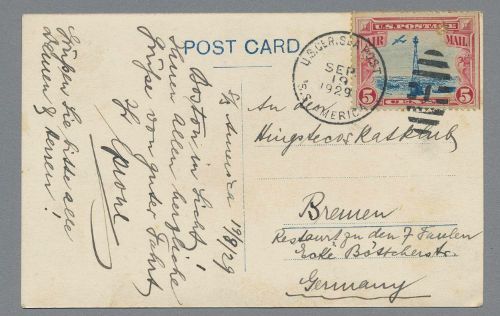 POST CARD
U.S. POSTAGE
AIR MAIL
5 CENTS 5
U.S.GER. SEA POST
SEP
19
1929
S.S. AMERICA
S/S America 19/8/29
Boston in Sicht!
Ihnen allen herzliche
Grüße von guter Fahrt
Grüßen Sie bitte alle
Damen & Herren!
An den
Bremen
Restaurt zu den 7 Faulen
Ecke Böttcherstr.
Germany